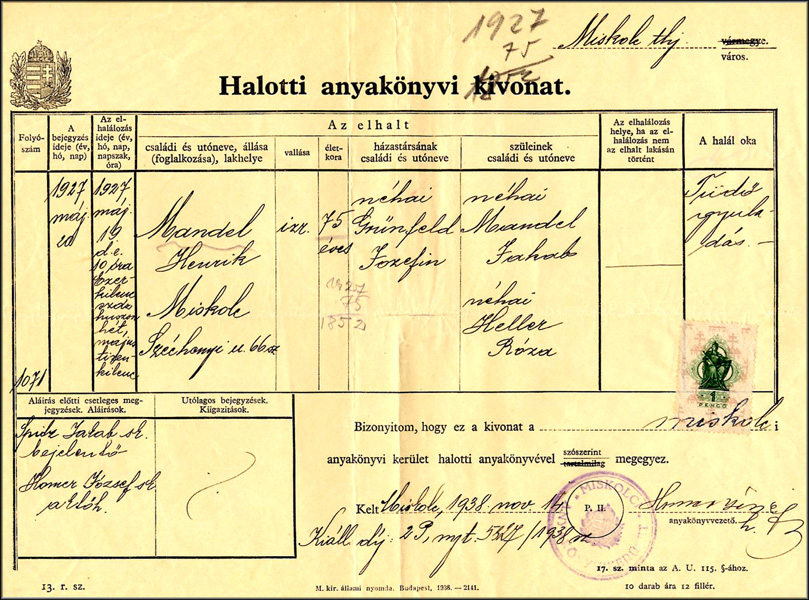 1927
75
1852
Miskolc thj. vármegye.
város.
Halotti anyakönyvi kivonat.
Folyó-
szám
A
bejegyzés
ideje (év,
hó, nap)
Az el-
halálozás
ideje (év,
hó, nap,
napszak,
óra)
Az elhalt
családi és utóneve, állása
(foglalkozása), lakhelye
vallása
élet-
kora
házastársának
családi és utóneve
szüleinek
családi és utóneve
Az elhalálozás
helye, ha az el-
halálozás nem
az elhalt lakásán
történt
A halál oka
1071
1927
máj.
20
1927,
máj.
19
d. e.
10 óra
Ezer-
kilenc
száz
huszon
hét,
május
tizen-
kilenc.
Mandel
Henrik
Miskolc
Széchenyi u. 66. sz.
izr.
75
éves
1927
75
1852
néhai
Grünfeld
Jozefin
néhai
Mandel
Jakab
néhai
Heller
Róza
Tüdő
gyula-
dás. —
Aláírás előtti esetleges meg-
jegyzések. Aláírások.
Utólagos bejegyzések.
Kiigazítások.
Spitz Jakab sk.
bejelentő
József sk.
Bizonyítom, hogy ez a kivonat a miskolci
anyakönyvi kerület halotti anyakönyvével szószerint megegyez.
tartalmilag
1
PENGŐ
Kelt Miskolc, 1938. nov. 14
P. H.
MISKOLC
anyakönyvvezető.
Kiáll. díj: 2 P, nyt. 5327/1938 sz
17. sz. minta az A. U. 115. §-ához.
13. r. sz.
M. kir. állami nyomda. Budapest, 1938. — 2141.
10 darab ára 12 fillér.